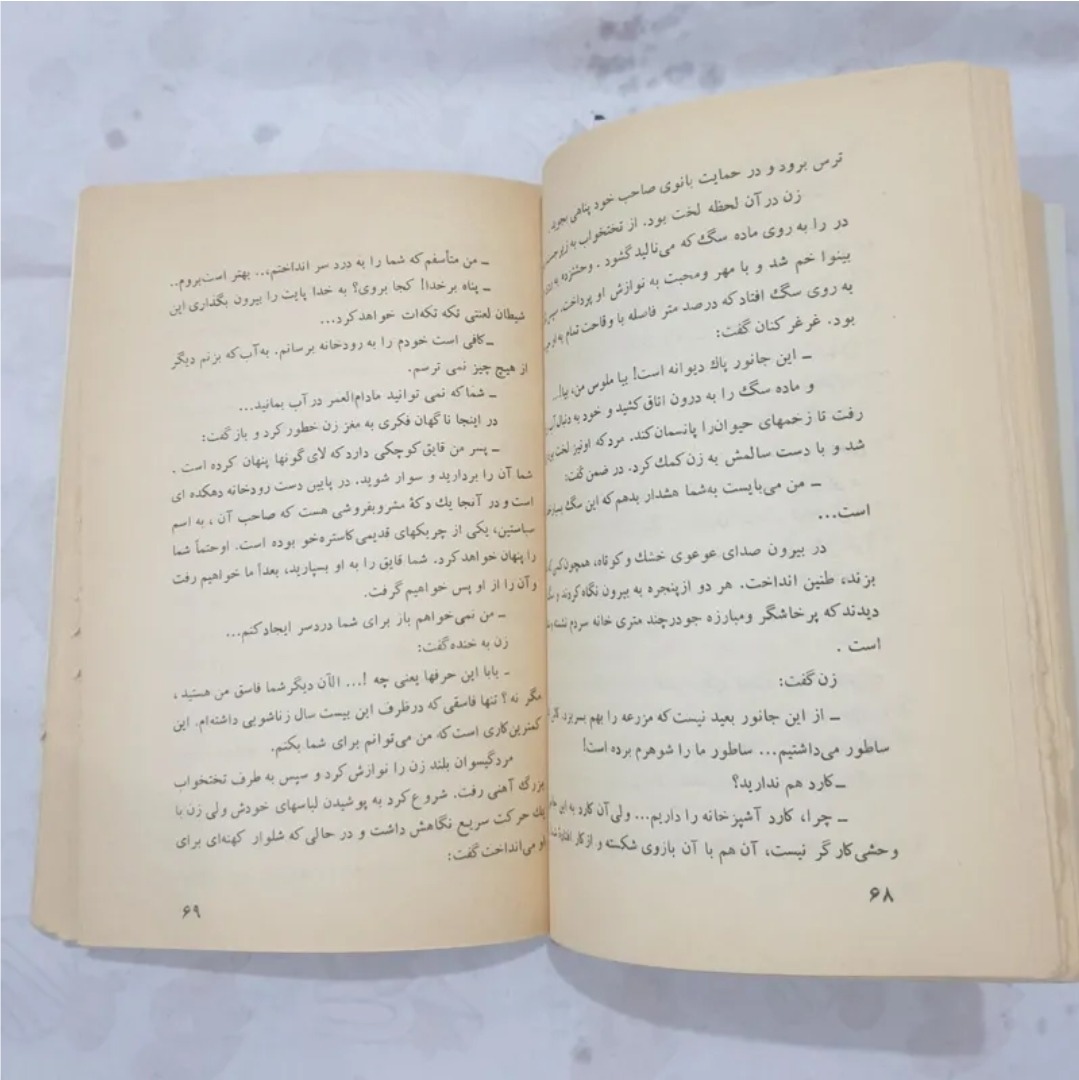 ترس برود و در حمایت بانوی صاحب خود پناهی بجوید.
زن در آن لحظه لخت بود. از تختخواب به زیر
در را به روی ماده سگ که می‌نالید گشود. وحشتزده به
بینوا خم شد و با مهر ومحبت به نوازش او پرداخت.
به روی سگ افتاد که درصد متر فاصله با وقاحت تمام به او
بود. غرغر کنان گفت:
ـ این جانور پاك دیوانه است! بیا ملوس من، بیا!...
و ماده سگ را به درون اتاق کشید و خود به دنبال آب
رفت تا زخمهای حیوان‌را پانسمان کند. مرد که او نیز لخت
شد و با دست سالمش به زن کمك کرد. در ضمن گفت:
ـ من می‌بایست به‌شما هشدار بدهم که این سگ بسیار
است...
در بیرون صدای عوعوی خشك و کوتاه، همچون
بزند، طنین انداخت. هر دو از پنجره به بیرون نگاه کردند و
دیدند که پرخاشگر ومبارزه جو در چند متری خانه سردم نشسته
است .
زن گفت:
ـ از این جانور بعید نیست که مزرعه را بهم بریزد.
ساطور می‌داشتیم... ساطور ما را شوهرم برده است!
ـ کارد هم ندارید؟
ـ چرا، کارد آشپزخانه را داریم... ولی آن کارد به این
وحشی کارگر نیست، آن هم با آن بازوی شکسته و از کار
۶۸
ـ من متأسفم که شما را به درد سر انداختم،... بهتر است‌بروم..
ـ پناه برخدا! کجا بروی؟ به خدا پایت را بیرون بگذاری این
شیطان لعنتی تکه تکه‌ات خواهد کرد...
ـ کافی است خودم را به رودخانه برسانم. به‌آب که بزنم دیگر
از هیچ چیز نمی ترسم.
ـ شما که نمی توانید مادام‌العمر در آب بمانید...
در اینجا ناگهان فکری به مغز زن خطور کرد و باز گفت:
ـ پسر من قایق کوچکی دارد که لای گونها پنهان کرده است .
شما آن را بردارید و سوار شوید. در پایین دست رودخانه دهکده ای
است و در آنجا یك دکهٔ مشروبفروشی هست که صاحب آن ، به اسم
سباستین، یکی از چریکهای قدیمی کاستره‌خو بوده است. او حتماً شما
را پنهان خواهد کرد. شما قایق را به او بسپارید، بعداً ما خواهیم رفت
و آن را از او پس خواهیم گرفت.
ـ من نمی‌خواهم باز برای شما دردسر ایجاد کنم...
زن به خنده گفت:
ـ بابا این حرفها یعنی چه !... الآن دیگر شما فاسق من هستید ،
مگر نه ؟ تنها فاسقی که در ظرف این بیست سال زناشویی داشته‌ام. این
کمترین کاری است که من می‌توانم برای شما بکنم.
مرد گیسوان بلند زن را نوازش کرد و سپس به طرف تختخواب
بزرگ آهنی رفت. شروع کرد به پوشیدن لباسهای خودش ولی زن با
یك حرکت سریع نگاهش داشت و در حالی که شلوار کهنه‌ای برای
او می‌انداخت گفت:
۶۹